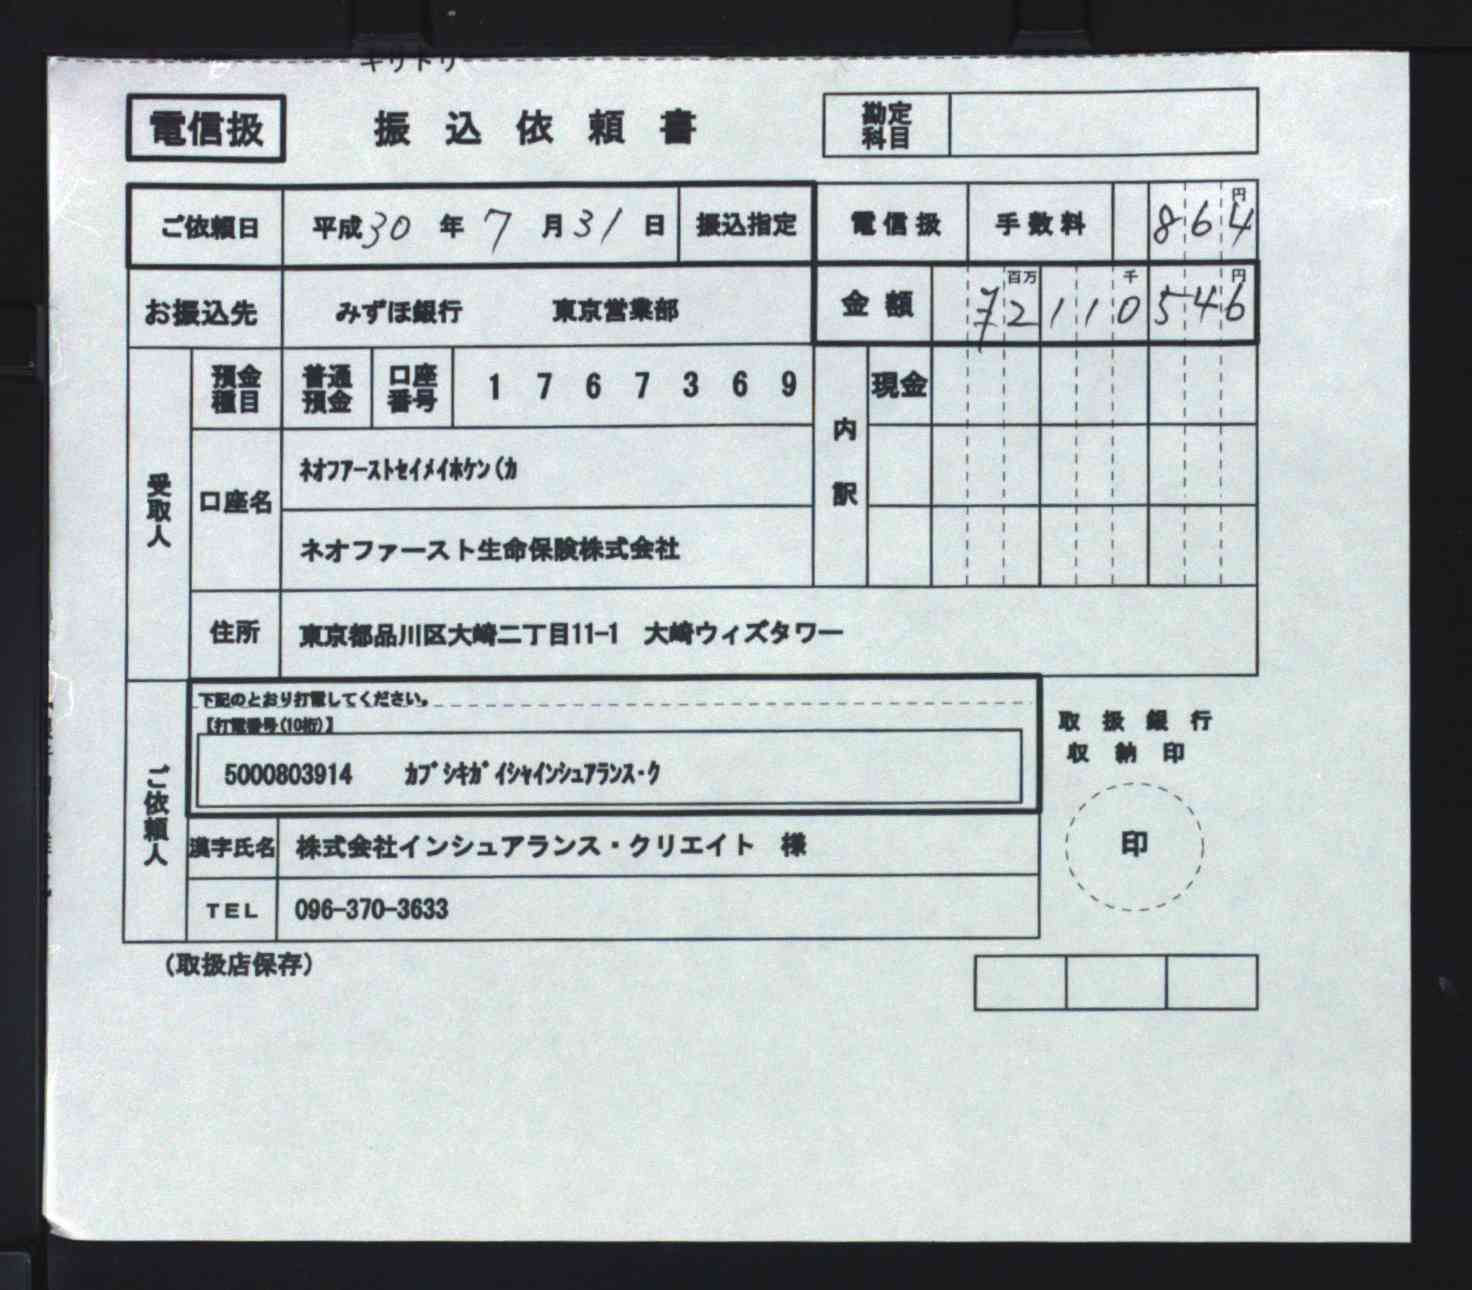 キリトリ
電信扱 振込依頼書 勘定科目
ご依頼日 平成30年7月31日 振込指定 電信扱 手数料 864円
お振込先 みずほ銀行 東京営業部 金額 百万 千 円 72110546
受取人 預金種目 普通預金 口座番号 1767369 内訳 現金
口座名 ネオフアーストセイメイホケン(カ
ネオファースト生命保険株式会社
住所 東京都品川区大崎二丁目11-1 大崎ウィズタワー
ご依頼人 下記のとおり打電してください。
【打電番号(10桁)】
5000803914 カブシキガイシャインシュアランス・ク
取扱銀行
収納印
印
漢字氏名 株式会社インシュアランス・クリエイト 様
TEL 096-370-3633
(取扱店保存)